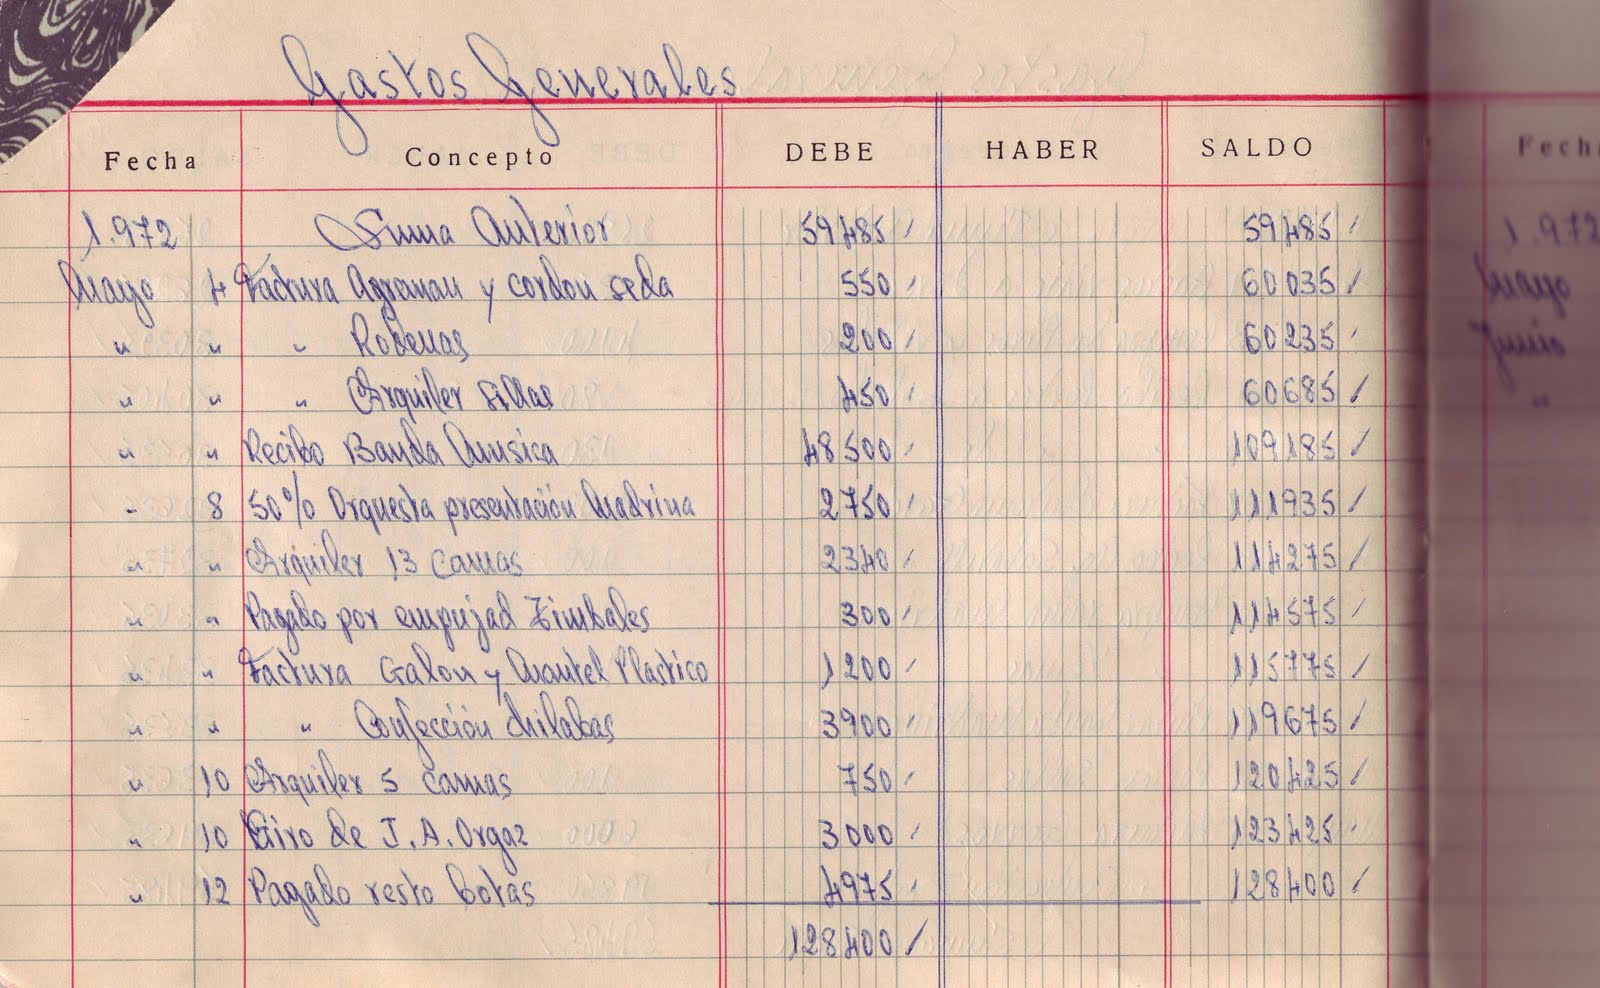 Gastos Generales
Fecha Concepto DEBE HABER SALDO
1.972 Suma Anterior 59485 59485
Mayo 4 Factura Agraman y cordon seda 550 60035
" " " Rodenas 200 60235
" " " Arquiler sillas 450 60685
" " Recibo Banda Musica 48500 109185
" 8 50% Orquesta presentación Madrina 2750 111935
" " Arquiler 13 camas 2340 114275
" " Pagado por empujad Timbales 300 114575
" " Factura Galon y Mantel Plastico 1200 115775
" " " Confección chilabas 3900 119675
" 10 Arquiler 5 camas 750 120425
" 10 Giro de J. A. Orgaz 3000 123425
" 12 Pagado resto botas 4975 128400
128400
Fecha
1.972
Mayo
Junio
"